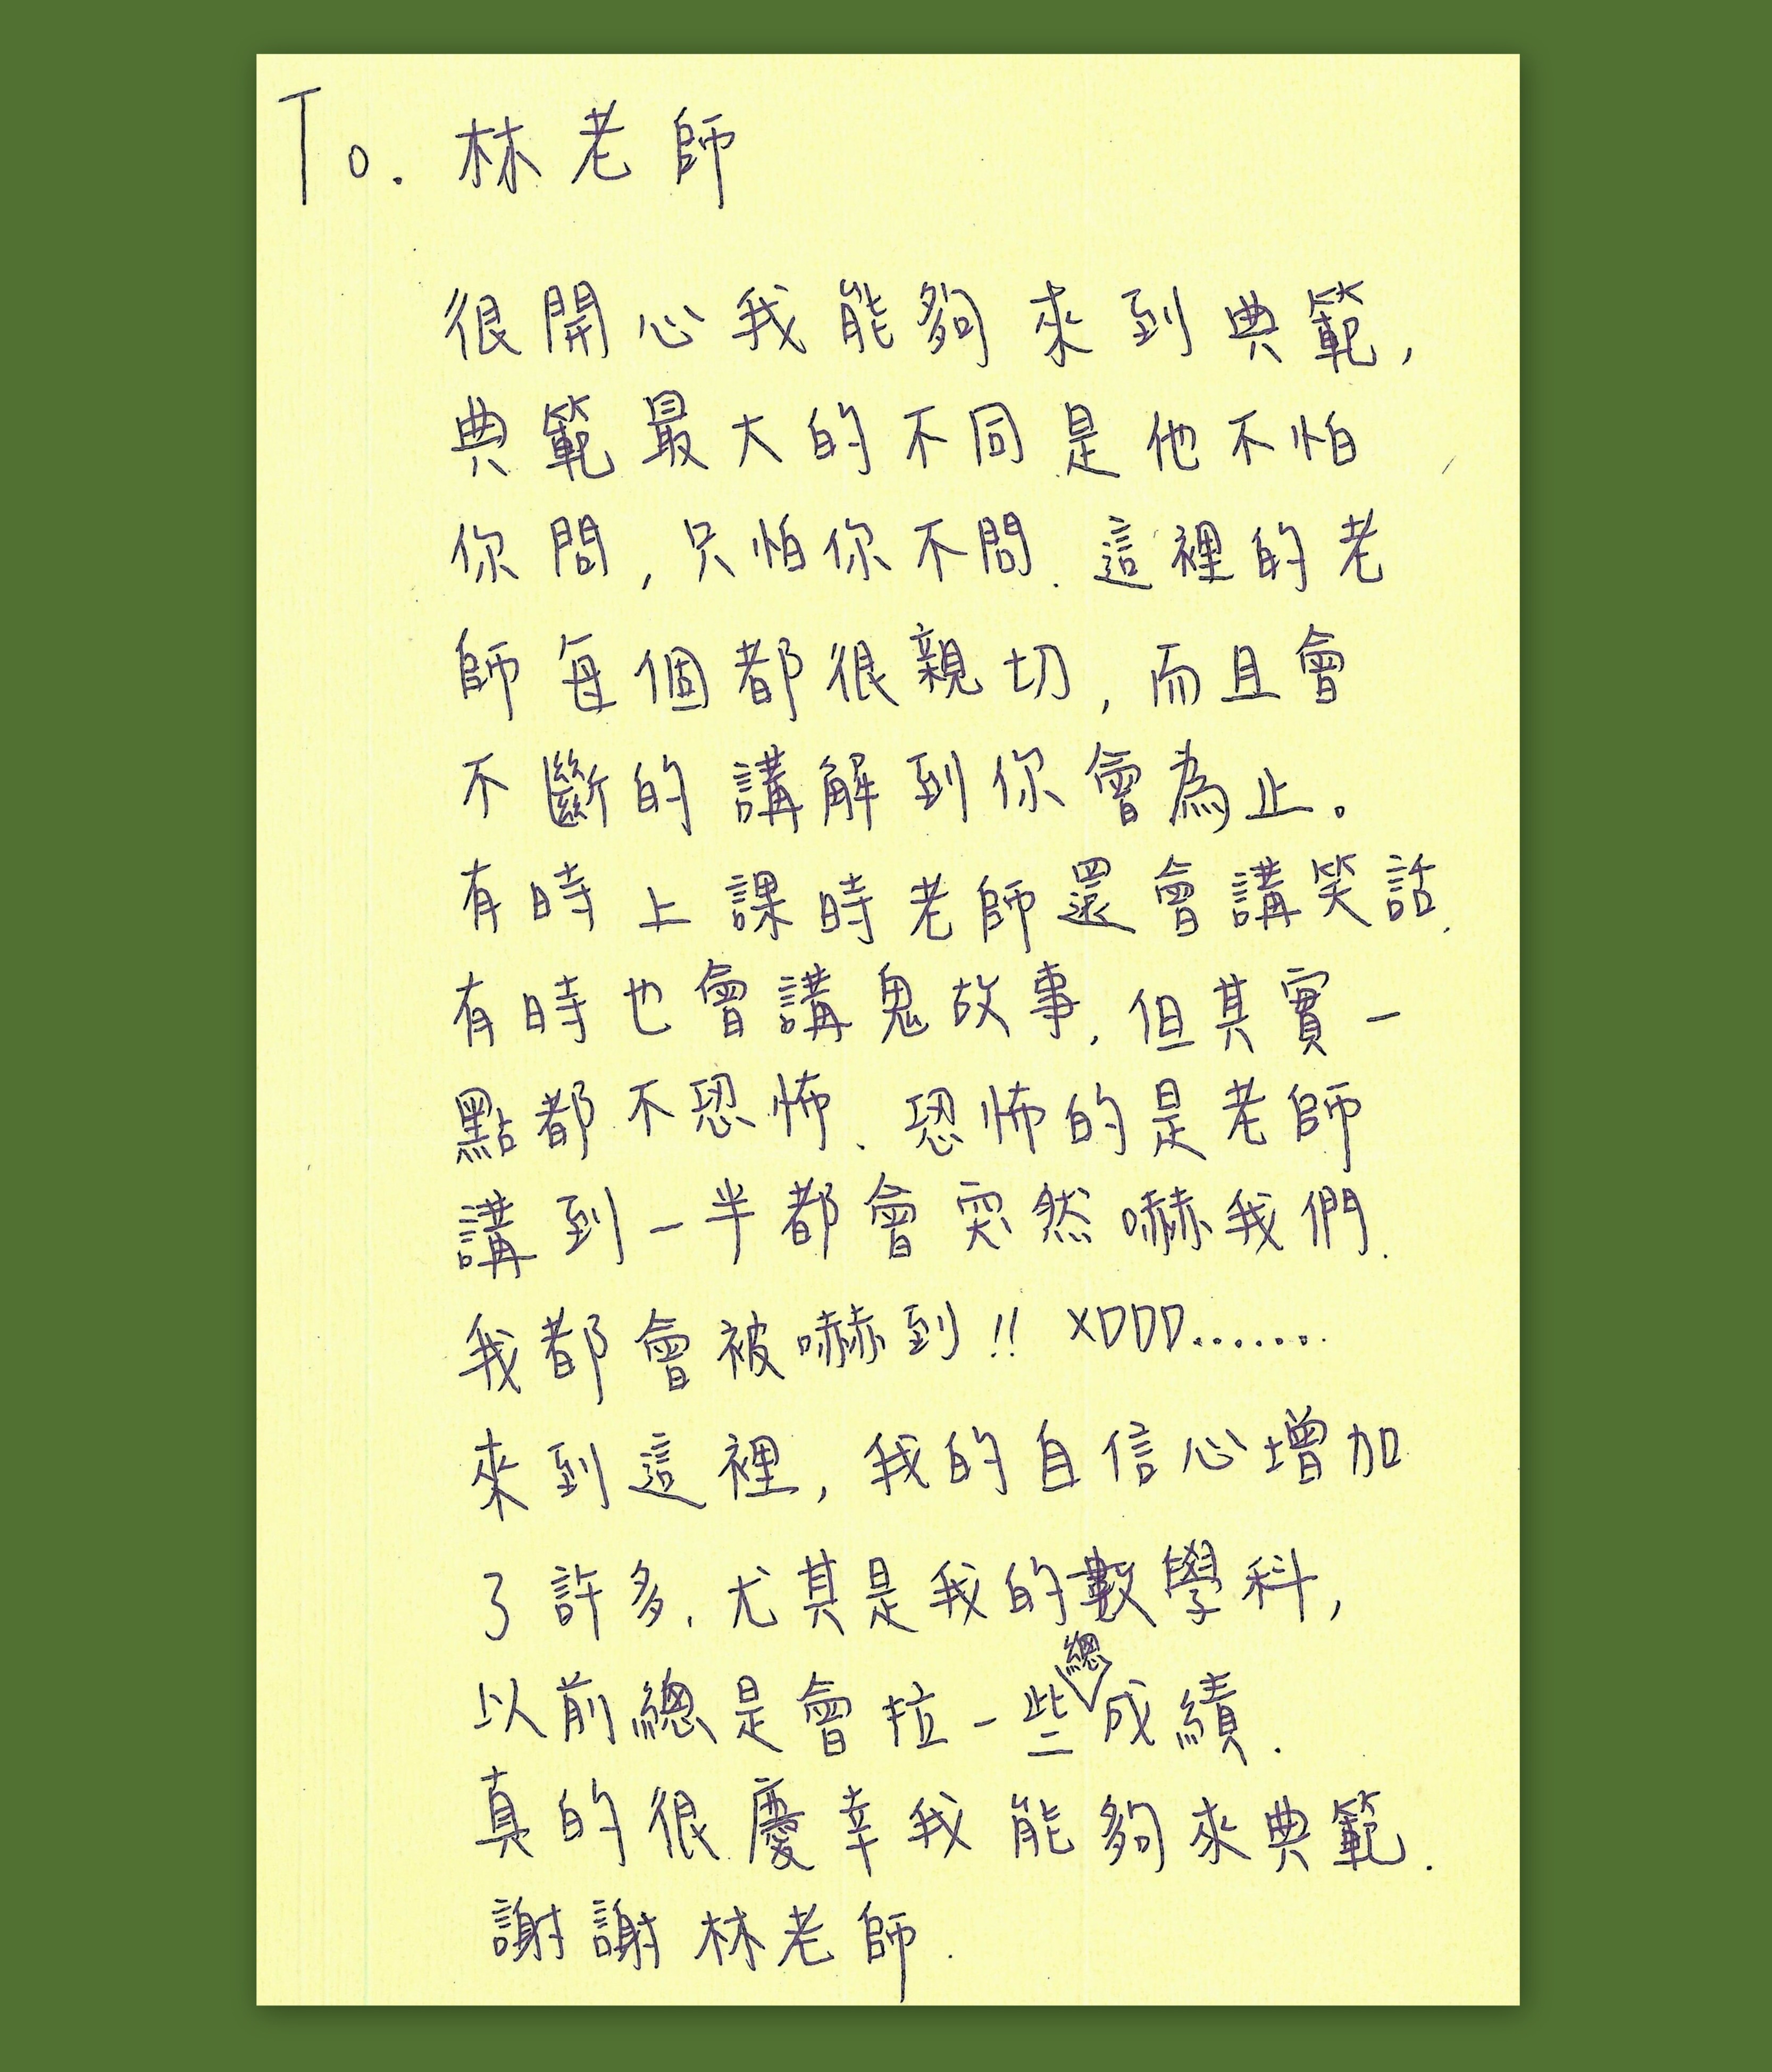 To. 林老師
很開心我能夠來到典範,
典範最大的不同是他不怕
你問,只怕你不問.這裡的老
師每個都很親切,而且會
不斷的講解到你會為止。
有時上課時老師還會講笑話.
有時也會講鬼故事.但其實一
點都不恐怖、恐怖的是老師
講到一半都會突然嚇我們.
我都會被嚇到!! XDDD.......
來到這裡,我的自信心增加
了許多.尤其是我的數學科,
以前總是會拉一些總成績.
真的很慶幸我能夠來典範.
謝謝林老師.